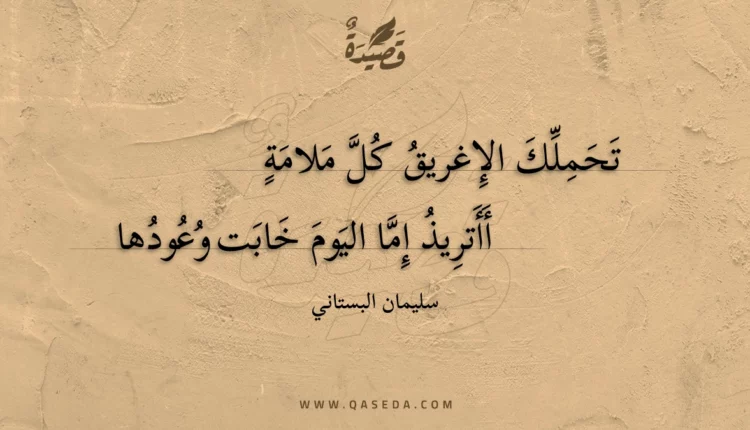 قَصِيْدَةٌ
تَحَمِلِّكَ الإِغريقُ كُلَّ مَلامَةٍ
أَأَترِيذُ إِمَّا اليَومَ خَابَت وُعُودُها
سليمان البستاني
WWW.QASEDA.COM